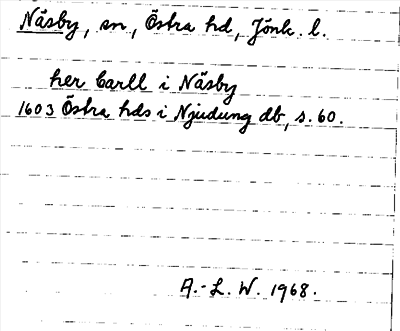 Näsby, sn, Östra hd, Jönk. l.
her Carll i Näsby
1603 Östra hds i Njudung db, s. 60.
A.-L. W. 1968.